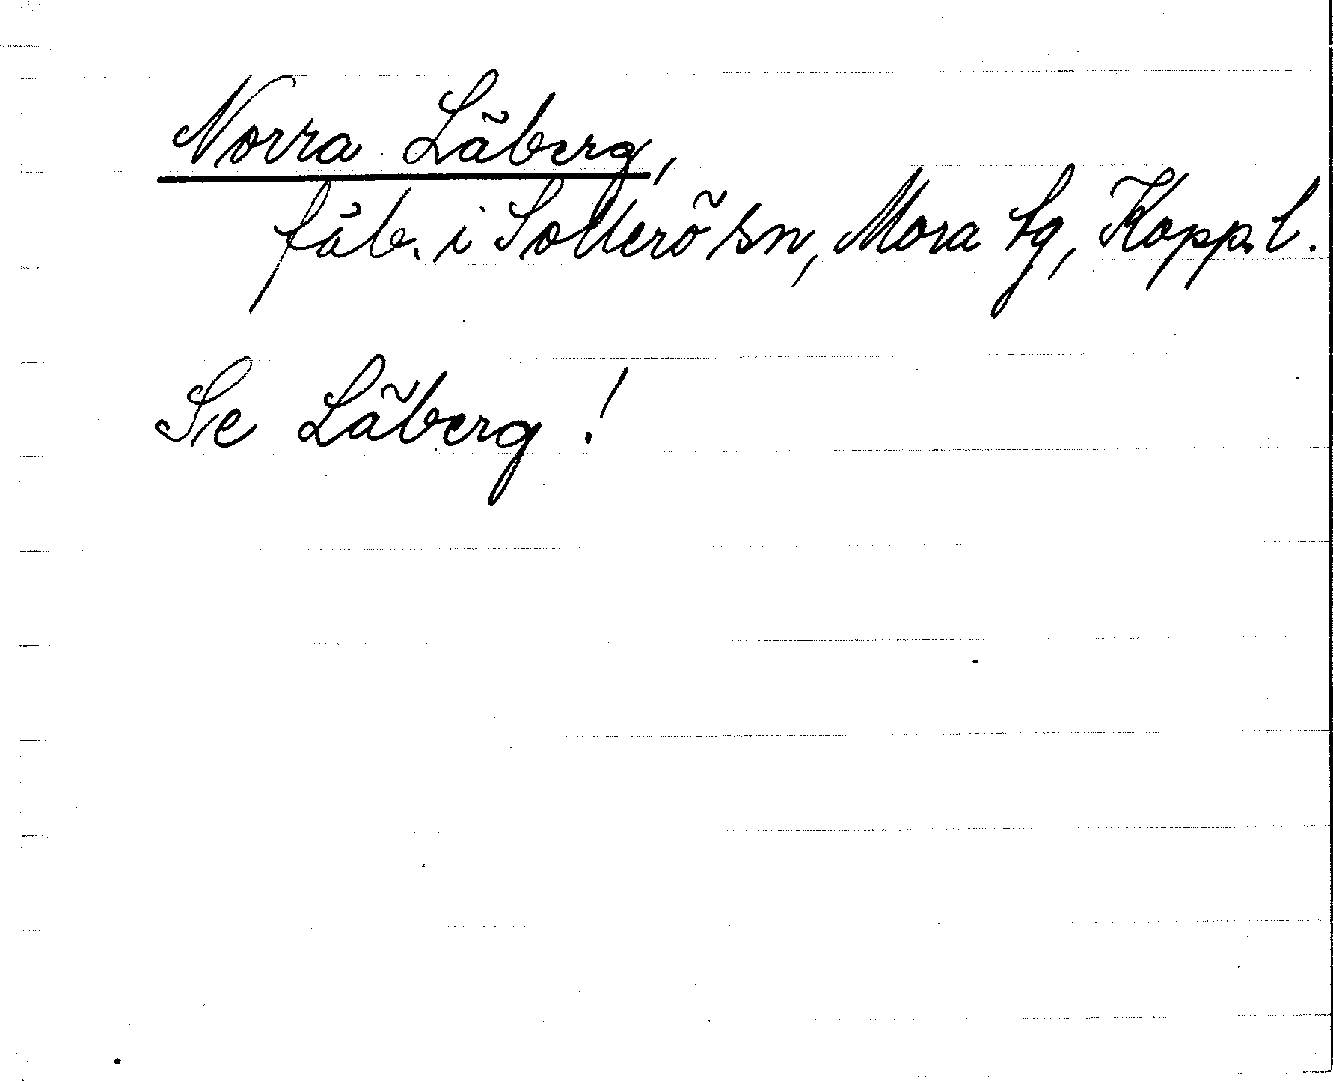 Norra Läberg,
fäb. i Sollerö sn, Mora tg, Kopp. l.
Se Läberg!